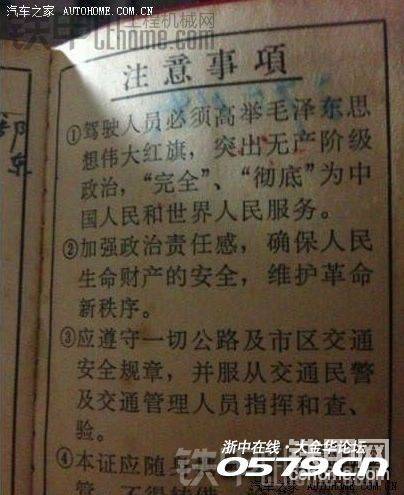 汽车之家 AUTOHOME.COM.CN
铁甲工程机械网
cehome.com
注意事項
①驾驶人员必须高举毛泽东思
想伟大红旗，突出无产阶级
政治，“完全”、“彻底”为中
国人民和世界人民服务。
②加强政治责任感，确保人民
生命财产的安全，维护革命
新秩序。
③应遵守一切公路及市区交通
安全规章，并服从交通民警
及交通管理人员指挥和查、
验。
④本证应随
浙中在线·大金华论坛
0579.cn